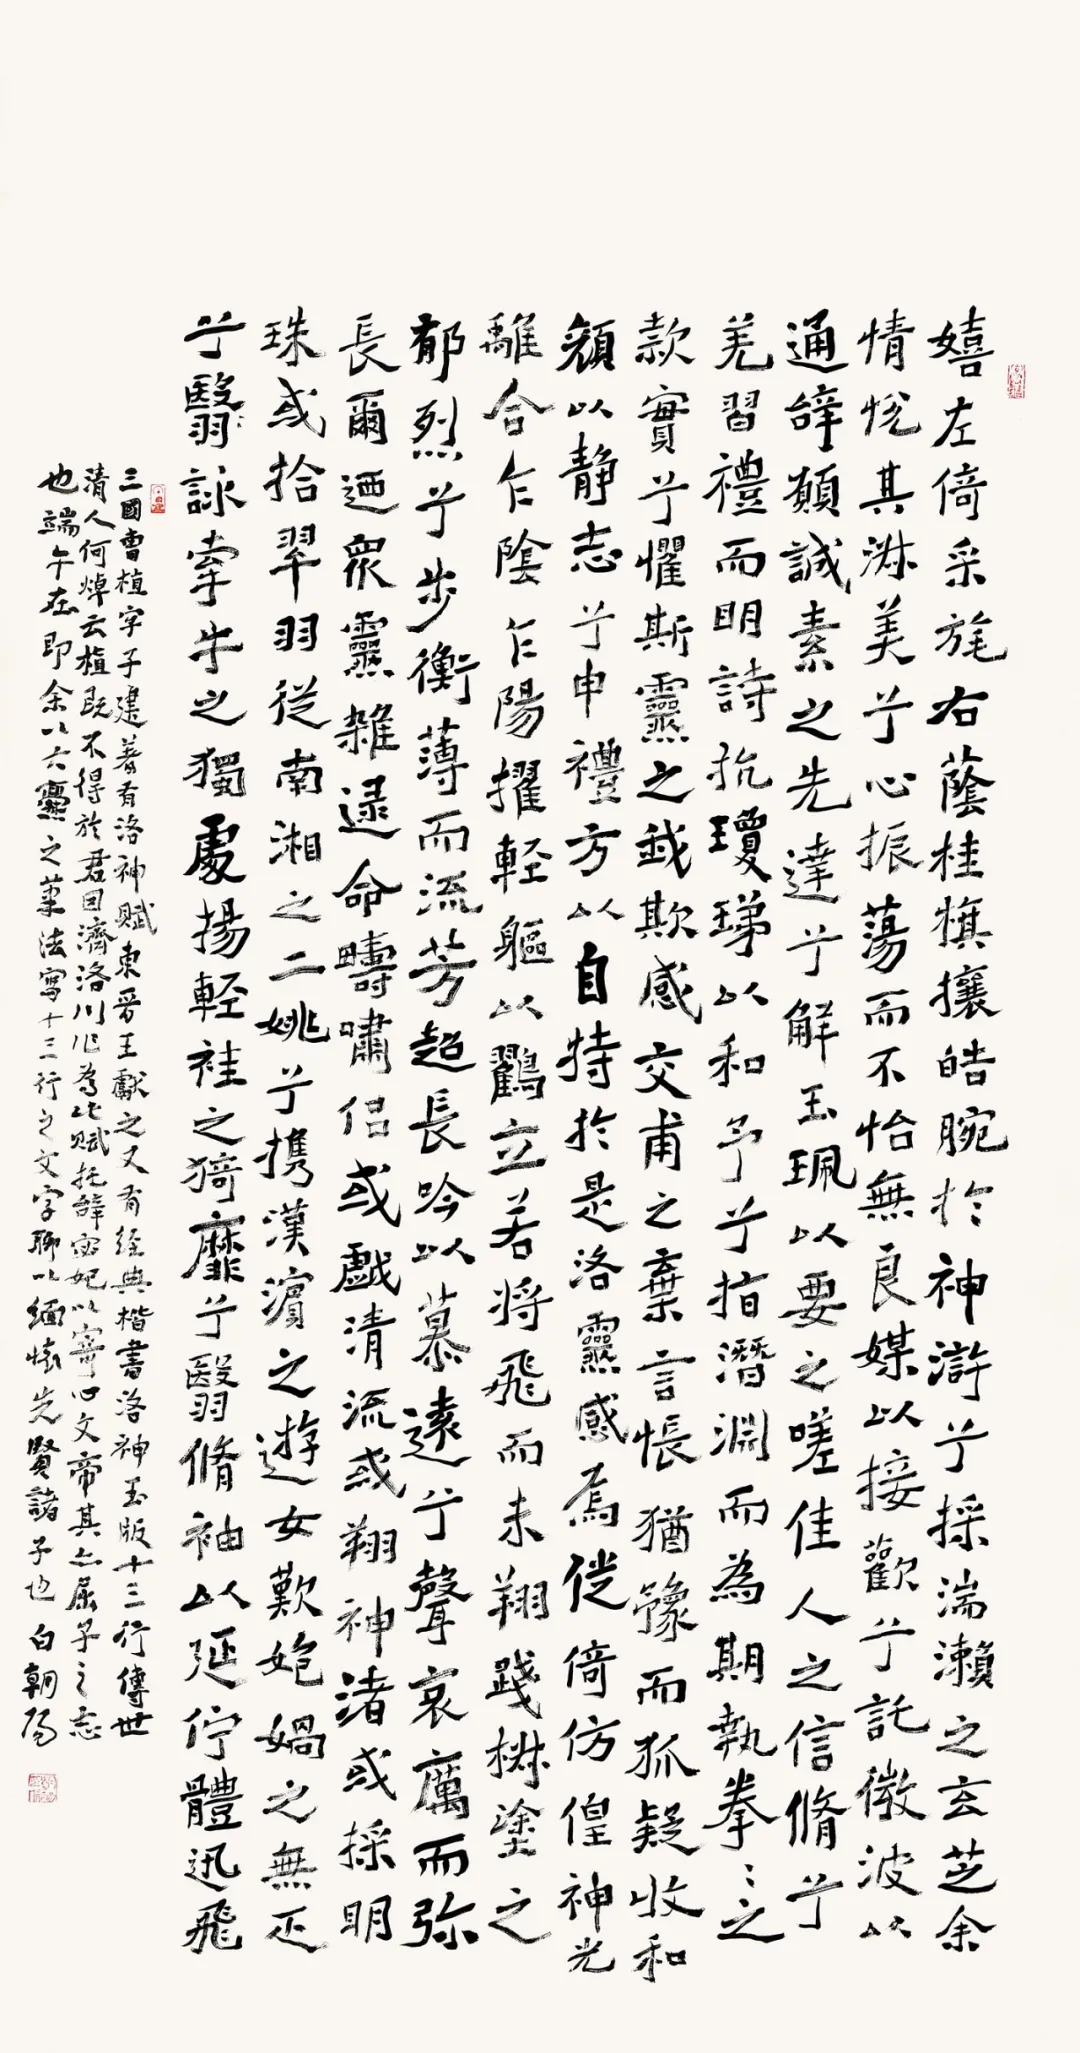 嬉左倚采旄右蔭桂旗攘皓腕於神滸兮採湍瀨之玄芝余
情悅其淋美兮心振蕩而不怡無良媒以接歡兮託微波以
通辭願誠素之先達兮解玉珮以要之嗟佳人之信脩兮
羌習禮而明詩抗瓊珶以和予兮指潛淵而為期執拳〻之
款實兮懼斯靈之我欺感交甫之棄言悵猶豫而狐疑收和
顏以静志兮申禮方以自持於是洛靈感焉徙倚仿偟神光
離合乍陰乍陽擢輕軀以鶴立若將飛而未翔踐椒塗之
郁烈兮步衡薄而流芳超長吟以慕遠兮聲哀厲而弥
長爾迺衆靈雜遝命疇嘯侣或戲清流或翔神渚或採明
珠或拾翠羽從南湘之二姚兮携漢濱之遊女歎匏媧之無匹
兮翳詠牽牛之獨處揚輕袿之猗靡兮翳脩袖以延佇體迅飛
三國曹植字子建著有洛神賦東晉王獻之又有經典楷書洛神玉版十三行傳世
清人何焯云植既不得於君因濟洛川作為此賦托辭宓妃以寄心文帝其亦屈子之志
也端午在即余以六爨之筆法寫十三行之文字聊以緬懷先賢諸子也白朝陽